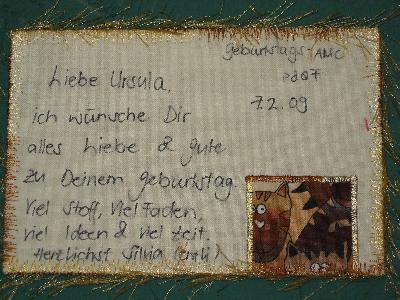 Geburtstags-AMC
7.2.09
Liebe Ursula,
ich wünsche Dir
alles Liebe & Gute
zu Deinem Geburtstag.
Viel Stoff, viel Faden,
viel Ideen & viel Zeit.
Herzlichst Silvia